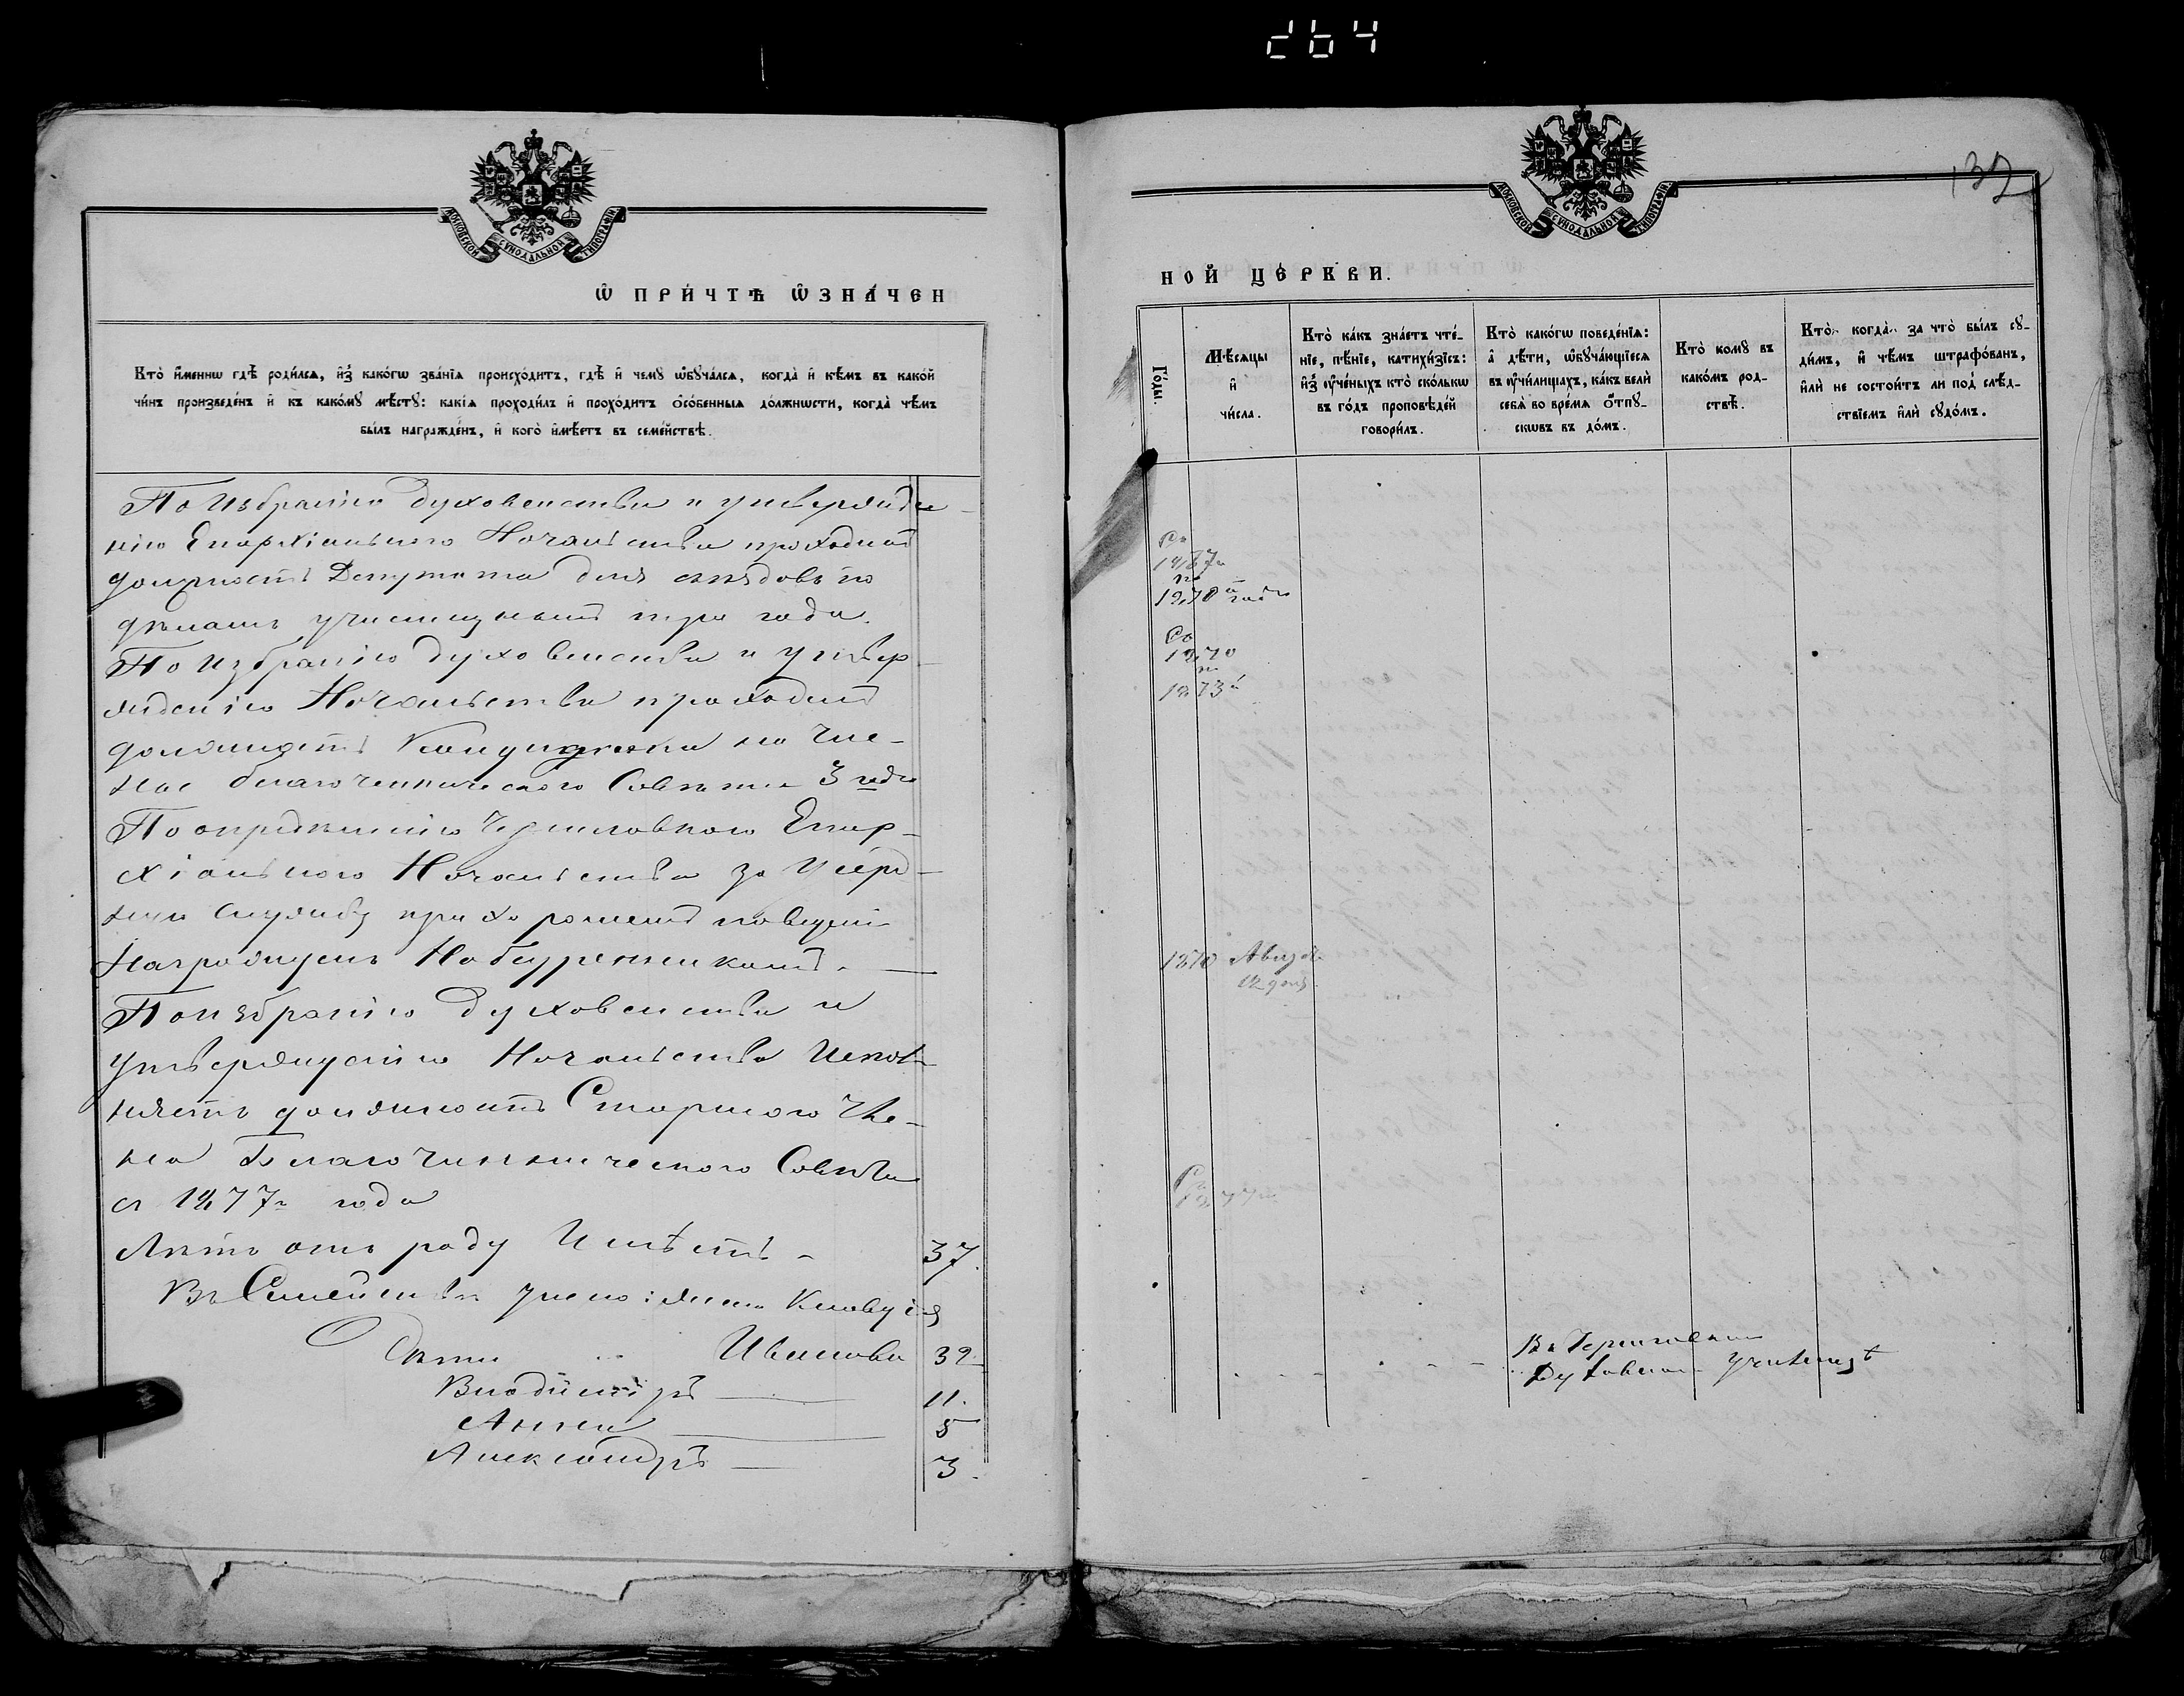 264
МОСКОВСКОЙ СѴНОДАЛЬНОЙ ТИПОГРАФІИ
Ѡ ПРИ́ЧТѢ Ѡ҆ЗНА́ЧЕН
Кто̀ и҆́меннѡ гдѣ̀ роди́лсѧ, и҆з̾ како́гѡ зва́нїѧ происхо́дитъ, гдѣ̀ и҆ чемꙋ̀ ѡ҆бꙋча́лсѧ, когда̀ и҆ кѣ́мъ въ како́й
чи́нъ произведе́нъ и҆ къ како́мꙋ мѣ́стꙋ: каки̑ѧ проходи́лъ и҆ прохо́дитъ ѻ҆со́бенныѧ до́лжнѡсти, когда̀ чѣ́мъ
бы́лъ награжде́нъ, и҆ кого̀ и҆мѣ́етъ въ семе́йствѣ.
По избранію духовенства и утвержде-
нію Епархіальнаго Начальства проходилъ
должность Депутата для слѣдовъ по
дѣламъ училищнымъ три года.
По избранію духовенства и утвер-
жденію Начальства проходилъ
должность Кандидата на Чле-
на благочинническаго Совѣта 3 года
По опредѣленію Черниговскаго Епар-
хіальнаго Начальства за усерд-
ную службу при хорошемъ поведеніи
Награжденъ Набедренникомъ.
По избранію духовенства и
утвержденію Начальства Испол-
няетъ должность Старшаго Чле-
на Благочинническаго Совѣта
съ 1877го года
Лѣтъ отъ роду Имѣетъ - 37.
Въ Семействѣ у него: жена Клавдія
Ивановa 32
Дѣти
Владиміръ 11.
Анна 5
Александръ 3.
132
МОСКОВСКОЙ СѴНОДАЛЬНОЙ ТИПОГРАФІИ
НОЙ ЦЕ́РКВИ.
Го́ды.
Мѣ́сѧцы
и҆
чи́сла.
Кто̀ ка́къ зна́етъ чте́-
нїе, пѣ́нїе, катихи́зїсъ:
и҆з̾ ᲂу҆че́ныхъ кто̀ ско́лькѡ
въ го́дъ проповѣ́дей
говори́лъ.
Кто̀ како́гѡ поведе́нїѧ:
а҆ дѣ́ти, ѡ҆бꙋча́ющїесѧ
въ ᲂу҆чи́лищахъ, ка́къ вели̑
себѧ̀ во вре́мѧ ѻ҆́тпꙋ-
скѡвъ въ до́мъ.
Кто̀ комꙋ̀ въ
како́мъ род-
ствѣ̀.
Кто̀ когда̀ за что̀ бы́лъ сꙋ-
ди́мъ, и҆ чѣ́мъ штрафо́ванъ,
и҆лѝ не состои́тъ ли под̾ слѣ́д-
ствїемъ и҆лѝ сꙋдо́мъ.
Съ
1867го
по
1870й годъ
Съ
1870
по
1873й
1870 Августа
12 дня.
Съ
1877го
Въ Черниговскомъ
Духовномъ училищѣ